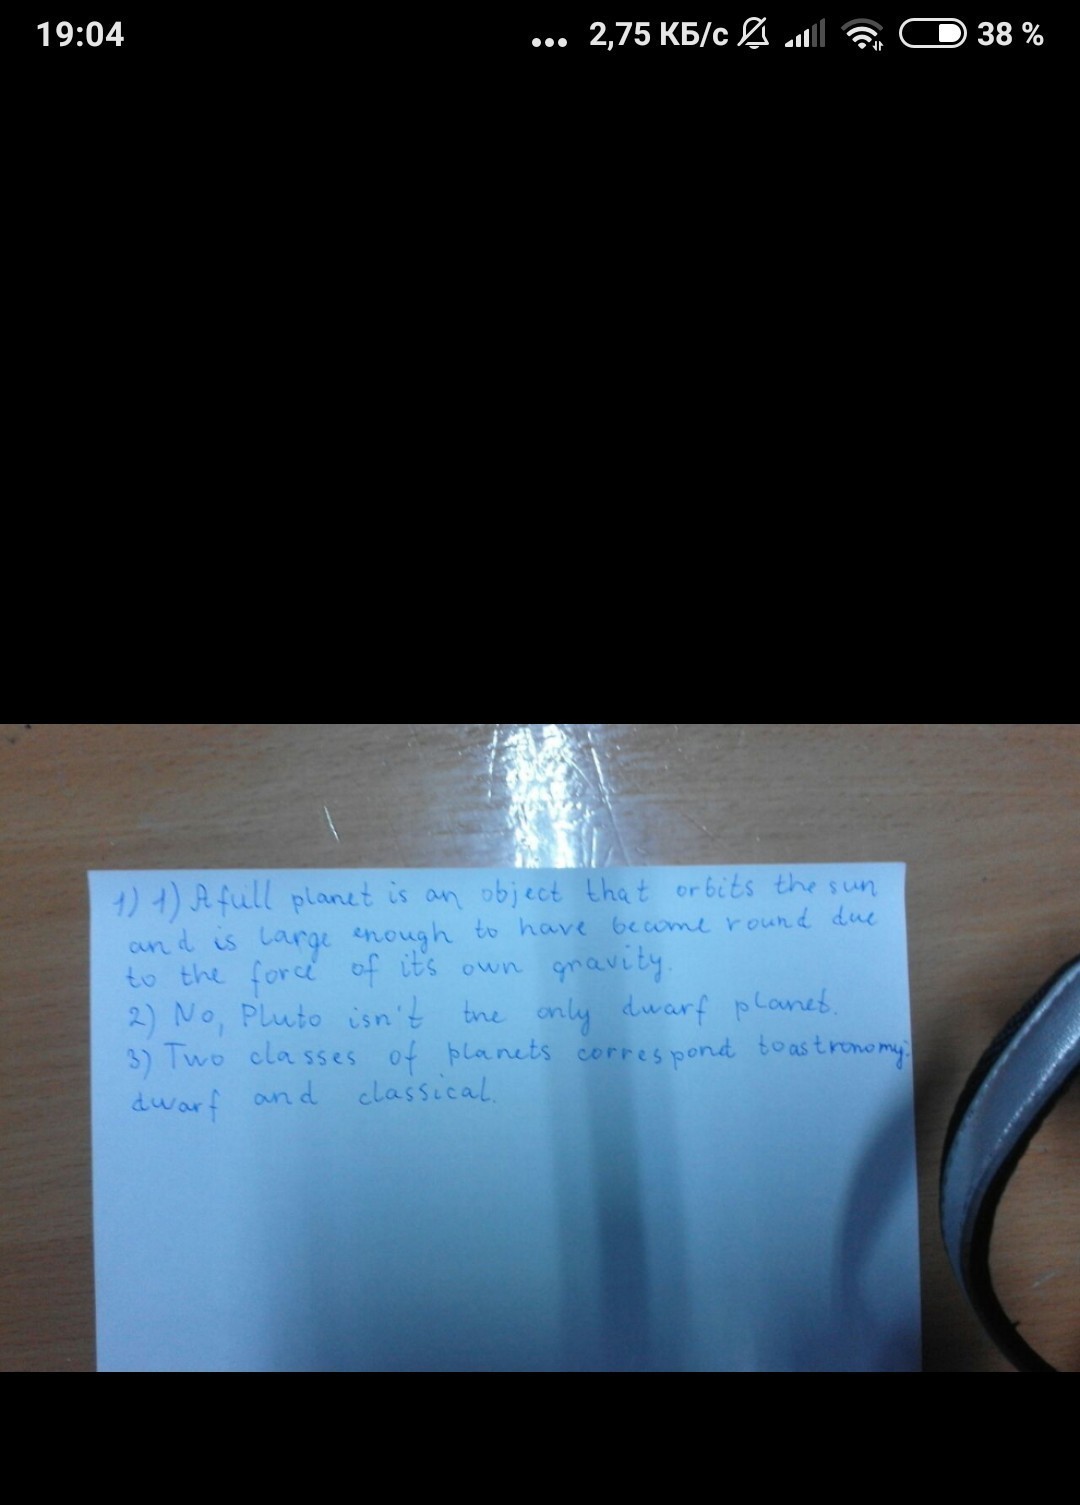 19:04 ... 2,75 КБ/с 38 %
1) 1) A full planet is an object that orbits the sun
and is large enough to have become round due
to the force of its own gravity.
2) No, Pluto isn't the only dwarf planet.
3) Two classes of planets correspond to astronomy:
dwarf and classical.